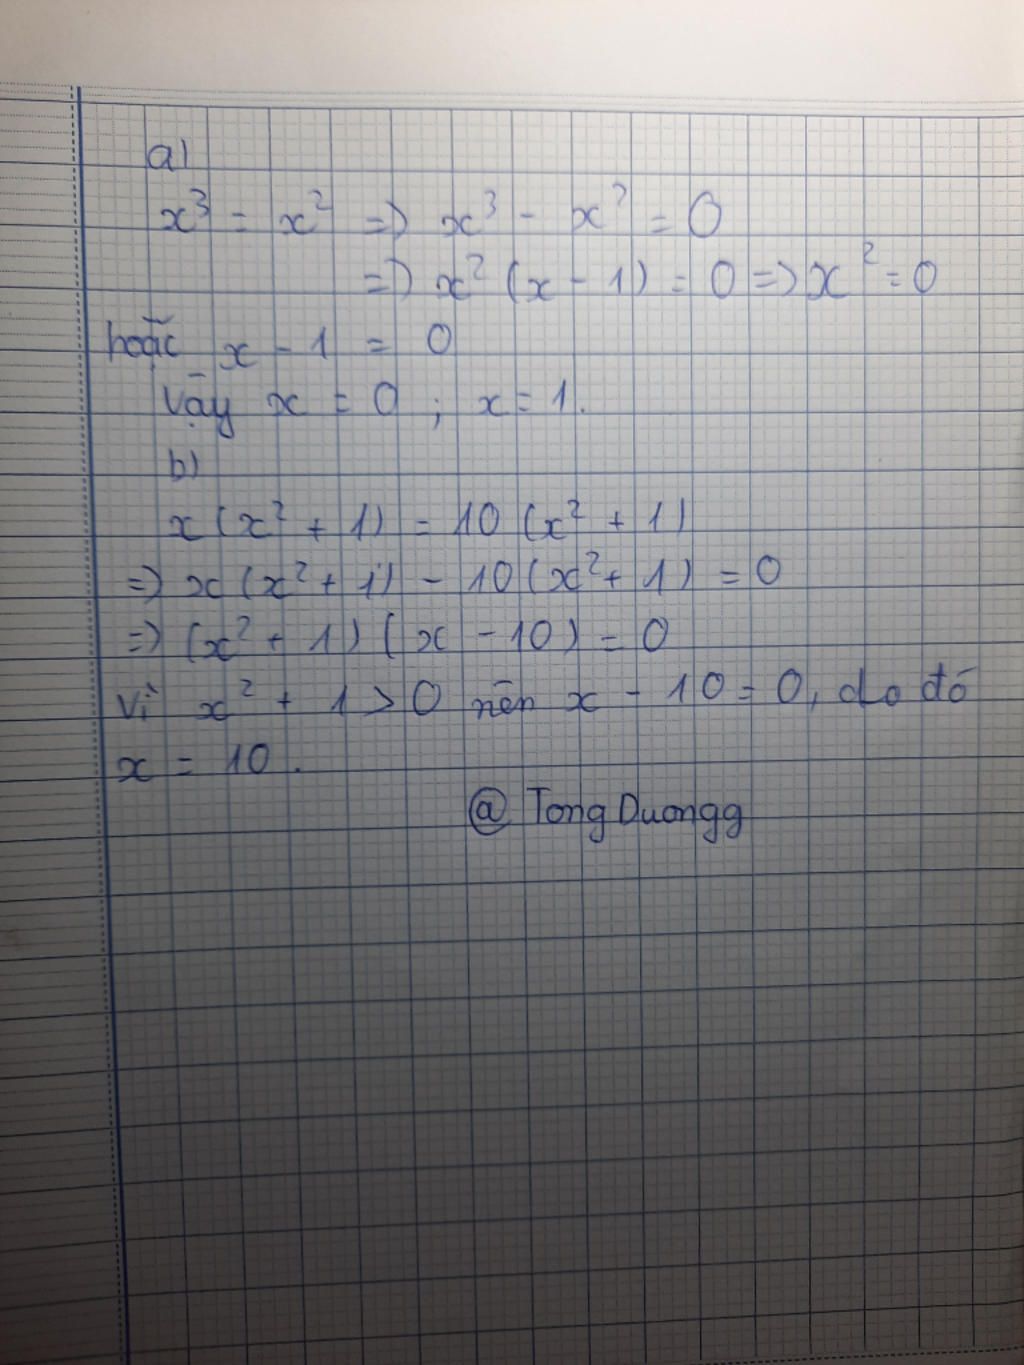 a)
x³ = x² => x³ - x² = 0
=> x² (x - 1) = 0 => x² = 0
hoặc x - 1 = 0
Vậy x = 0 ; x = 1.
b)
x(x² + 1) = 10 (x² + 1)
=> x(x² + 1) - 10(x² + 1) = 0
=> (x² + 1)(x - 10) = 0
Vì x² + 1 > 0 nên x - 10 = 0, do đó
x = 10.
@ Tong Duongg